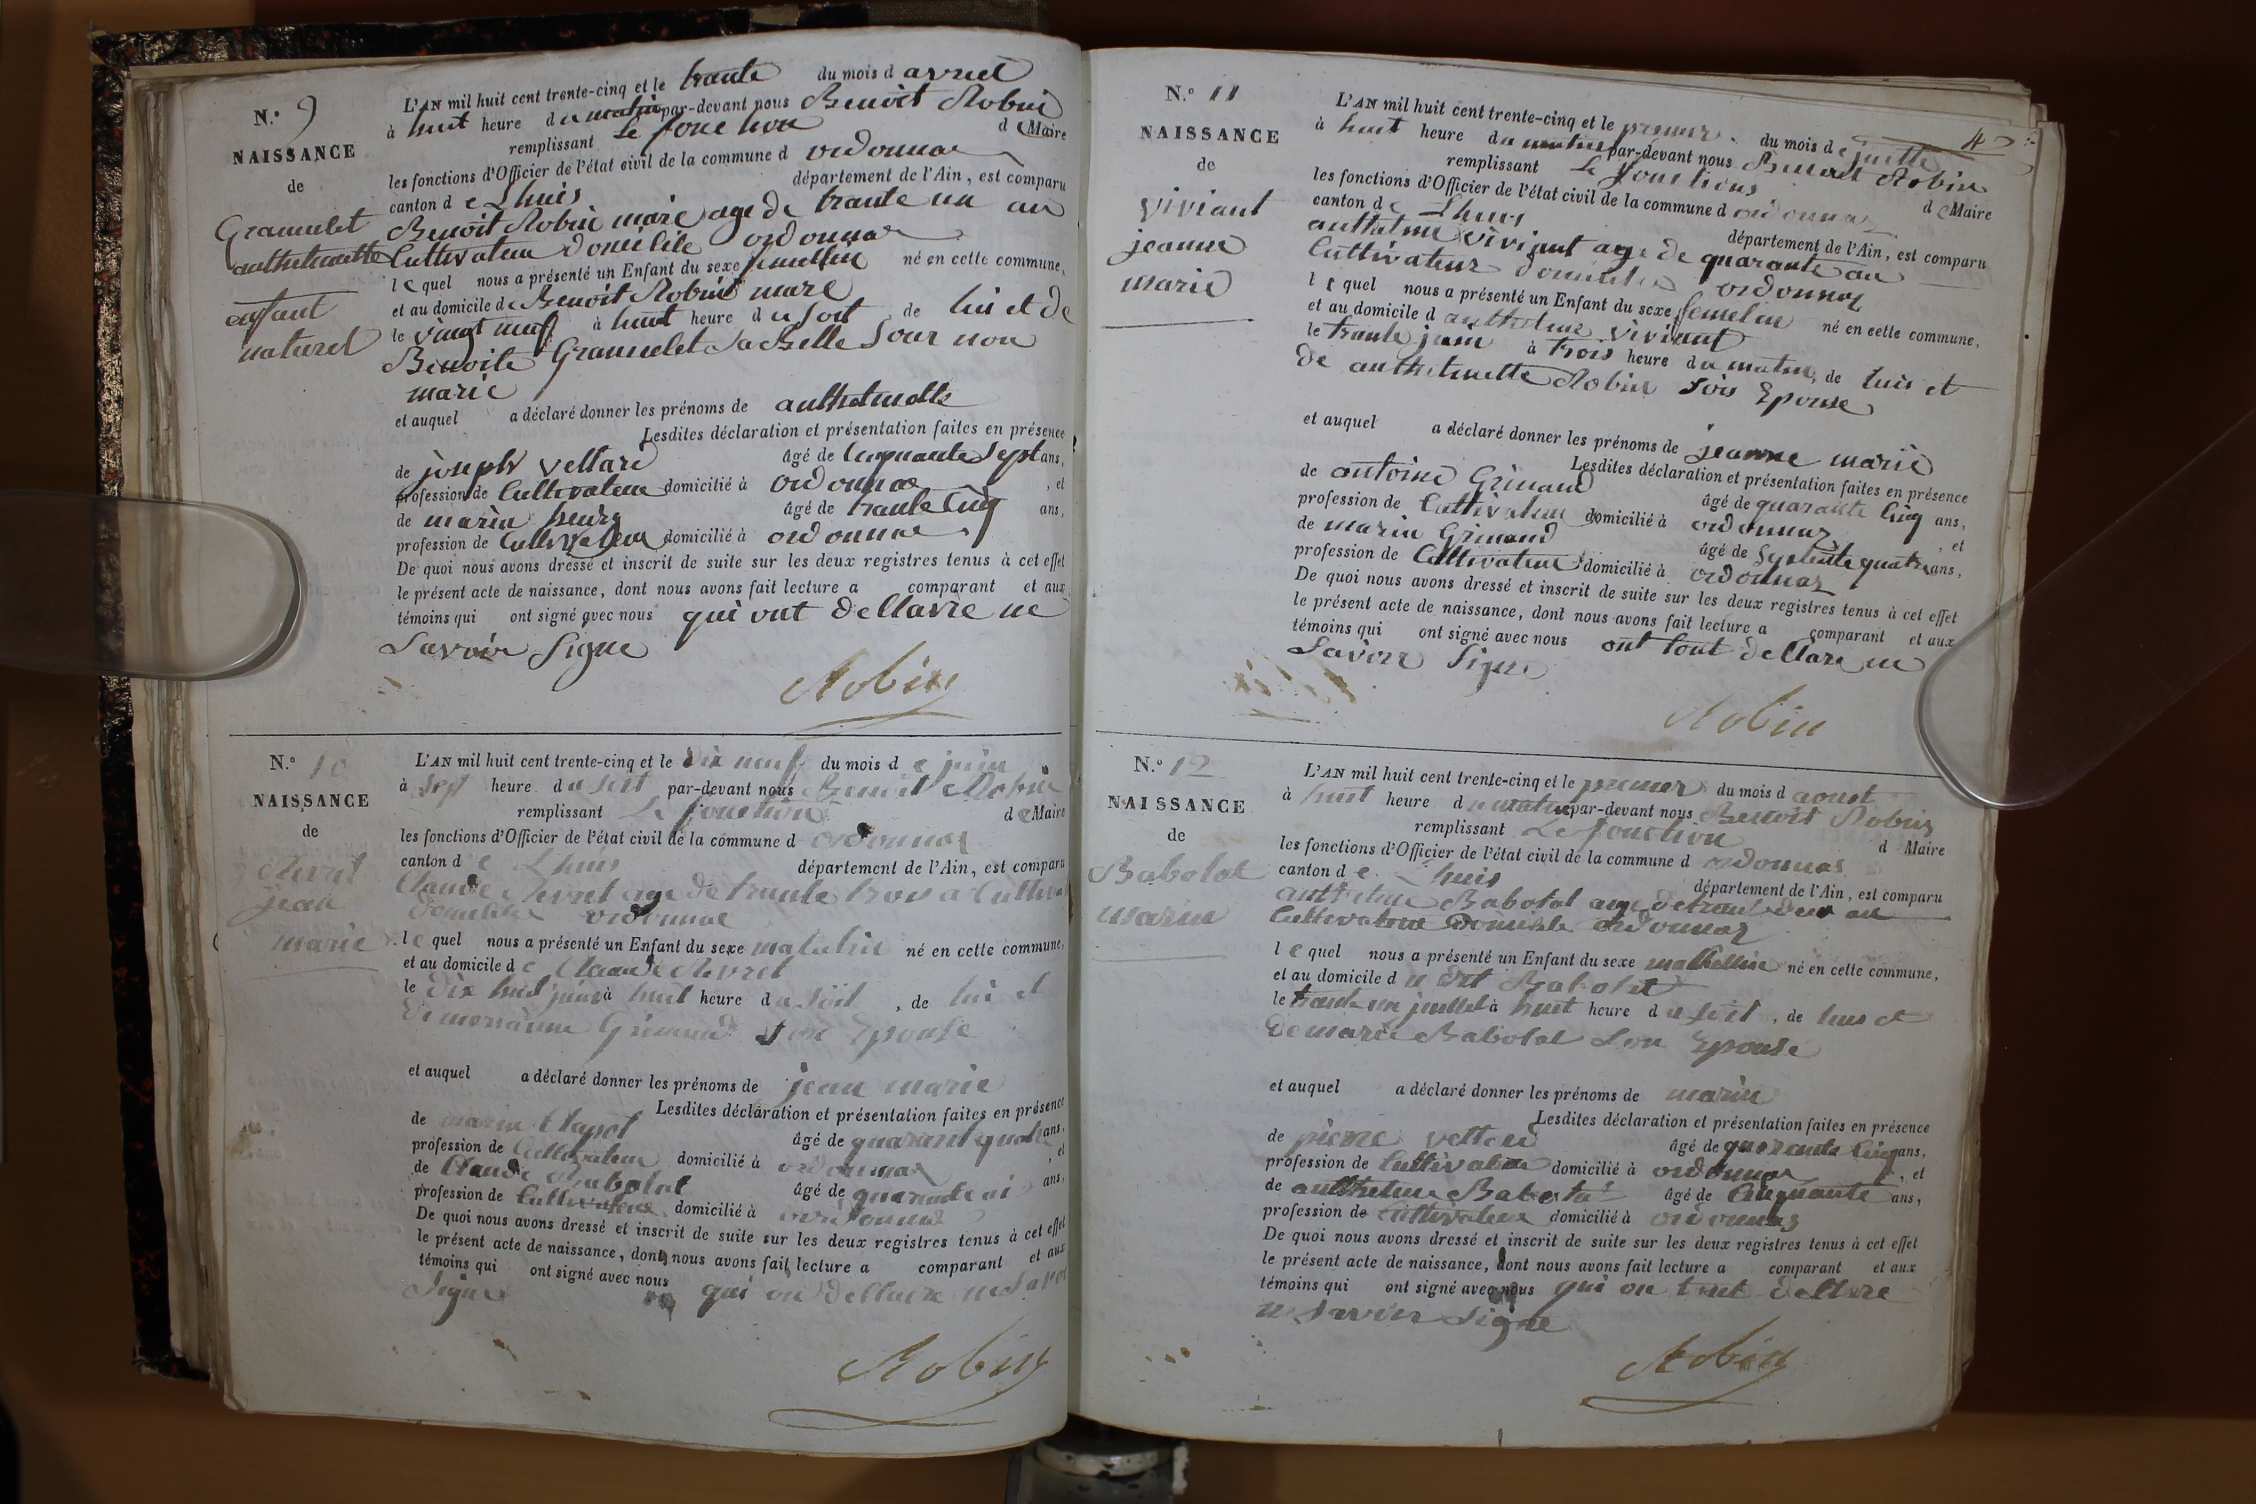 N.º 9
NAISSANCE
de
Gramulet
anthelmette
enfant
naturel
L'AN mil huit cent trente-cinq et le trante du mois d avriel
à huit heure du matin par-devant nous Benoit Robin
remplissant le fonction de Maire
les fonctions d'Officier de l'état civil de la commune d ordonnas
canton de Lhuis département de l'Ain, est comparu
Benoit Robin maire age de trante un an
Cultivateur domicilie ordonnas
lequel nous a présenté un Enfant du sexe femellin né en cette commune,
et au domicile de Benoit Robin mare
le vingt neuf à huit heure du soit de lui et de
Benoite Gramulet sa Belle Sour non
marie
et auquel a déclaré donner les prénoms de
Lesdites déclaration et présentation faites en présence
de joseph vettard âgé de Cinquante Sept ans,
profession de Cultivateur domicilié à ordonnas, et
de marin âgé de trante Cinq ans,
profession de Cultivateur domicilié à ordonnas
De quoi nous avons dressé et inscrit de suite sur les deux registres tenus à cet effet
le présent acte de naissance, dont nous avons fait lecture a comparant et aux
témoins qui ont signé avec nous qui ont dellaré ne
Savoir Signe
Robin
N.º 10
NAISSANCE
de
Chevret
jean
marie
L'AN mil huit cent trente-cinq et le dix neuf du mois de juin
à sept heure du soit par-devant nous Benoit Robin
remplissant le fonction de Maire
les fonctions d'Officier de l'état civil de la commune d ordonnas
canton de Lhuis département de l'Ain, est comparu
Claude Chevret age de trante trois a Cultiva
domicilie ordonnas
lequel nous a présenté un Enfant du sexe né en cette commune,
et au domicile de Claude Chevret
le dix huit juin à huit heure du soit, de lui et
de Grimand son Epouse
et auquel a déclaré donner les prénoms de jean marie
Lesdites déclaration et présentation faites en présence
de marin Clapot âgé de quarante quatre ans,
profession de Cultivateur domicilié à ordonnas, et
de Claude Babolat âgé de quarante ans,
profession de Cultivateur domicilié à ordonnas
De quoi nous avons dressé et inscrit de suite sur les deux registres tenus à cet effet
le présent acte de naissance, dont nous avons fait lecture a comparant et aux
témoins qui ont signé avec nous qui on dellare ne Savoi
Signe
Robin
42
N.º 11
NAISSANCE
de
viviant
jeanne
marie
L'AN mil huit cent trente-cinq et le premier du mois de juillet
à huit heure du matin par-devant nous Benoit Robin
remplissant Le fonctions de Maire
les fonctions d'Officier de l'état civil de la commune d ordonnas
canton de Lhuis département de l'Ain, est comparu
anthelme viviant age de quarante an
Cultivateur domicilie ordonnas
lequel nous a présenté un Enfant du sexe femelin né en cette commune,
et au domicile d anthelme viviant
le trante juin à trois heure du matin, de luis et
de anthelmette Robin Son Epouse
et auquel a déclaré donner les prénoms de jeanne marie
Lesdites déclaration et présentation faites en présence
de antoine Grimand âgé de quarante Cinq ans,
profession de Cultivateur domicilié à ordonnas, et
de marin Grimand âgé de Septente quatre ans,
profession de Cultivateur domicilié à ordonnas
De quoi nous avons dressé et inscrit de suite sur les deux registres tenus à cet effet
le présent acte de naissance, dont nous avons fait lecture a comparant et aux
témoins qui ont signé avec nous ont tout dellare ne
Savoir Signe
Robin
N.º 12
NAISSANCE
de
Babolat
marin
L'AN mil huit cent trente-cinq et le premier du mois d aoust
à huit heure du matin par-devant nous Benoit Robin
remplissant Le fonction d Maire
les fonctions d'Officier de l'état civil de la commune d ordonnas
canton de Lhuis département de l'Ain, est comparu
anthelme Babolat age de trant deux an
Cultivateur Domicile ordonnas
lequel nous a présenté un Enfant du sexe né en cette commune,
et au domicile du dit Babolat
le trante un juillet à huit heure du soit, de luis et
de marie Babolat Son Epouse
et auquel a déclaré donner les prénoms de marin
Lesdites déclaration et présentation faites en présence
de pierre vettard âgé de quarante Cinq ans,
profession de Cultivateur domicilié à ordonnas, et
de anthelme Babolat âgé de Cinquante ans,
profession de cultivateur domicilié à ordonnas
De quoi nous avons dressé et inscrit de suite sur les deux registres tenus à cet effet
le présent acte de naissance, dont nous avons fait lecture a comparant et aux
témoins qui ont signé avec nous qui on tout dellare
ne Savoir Signe
Robin